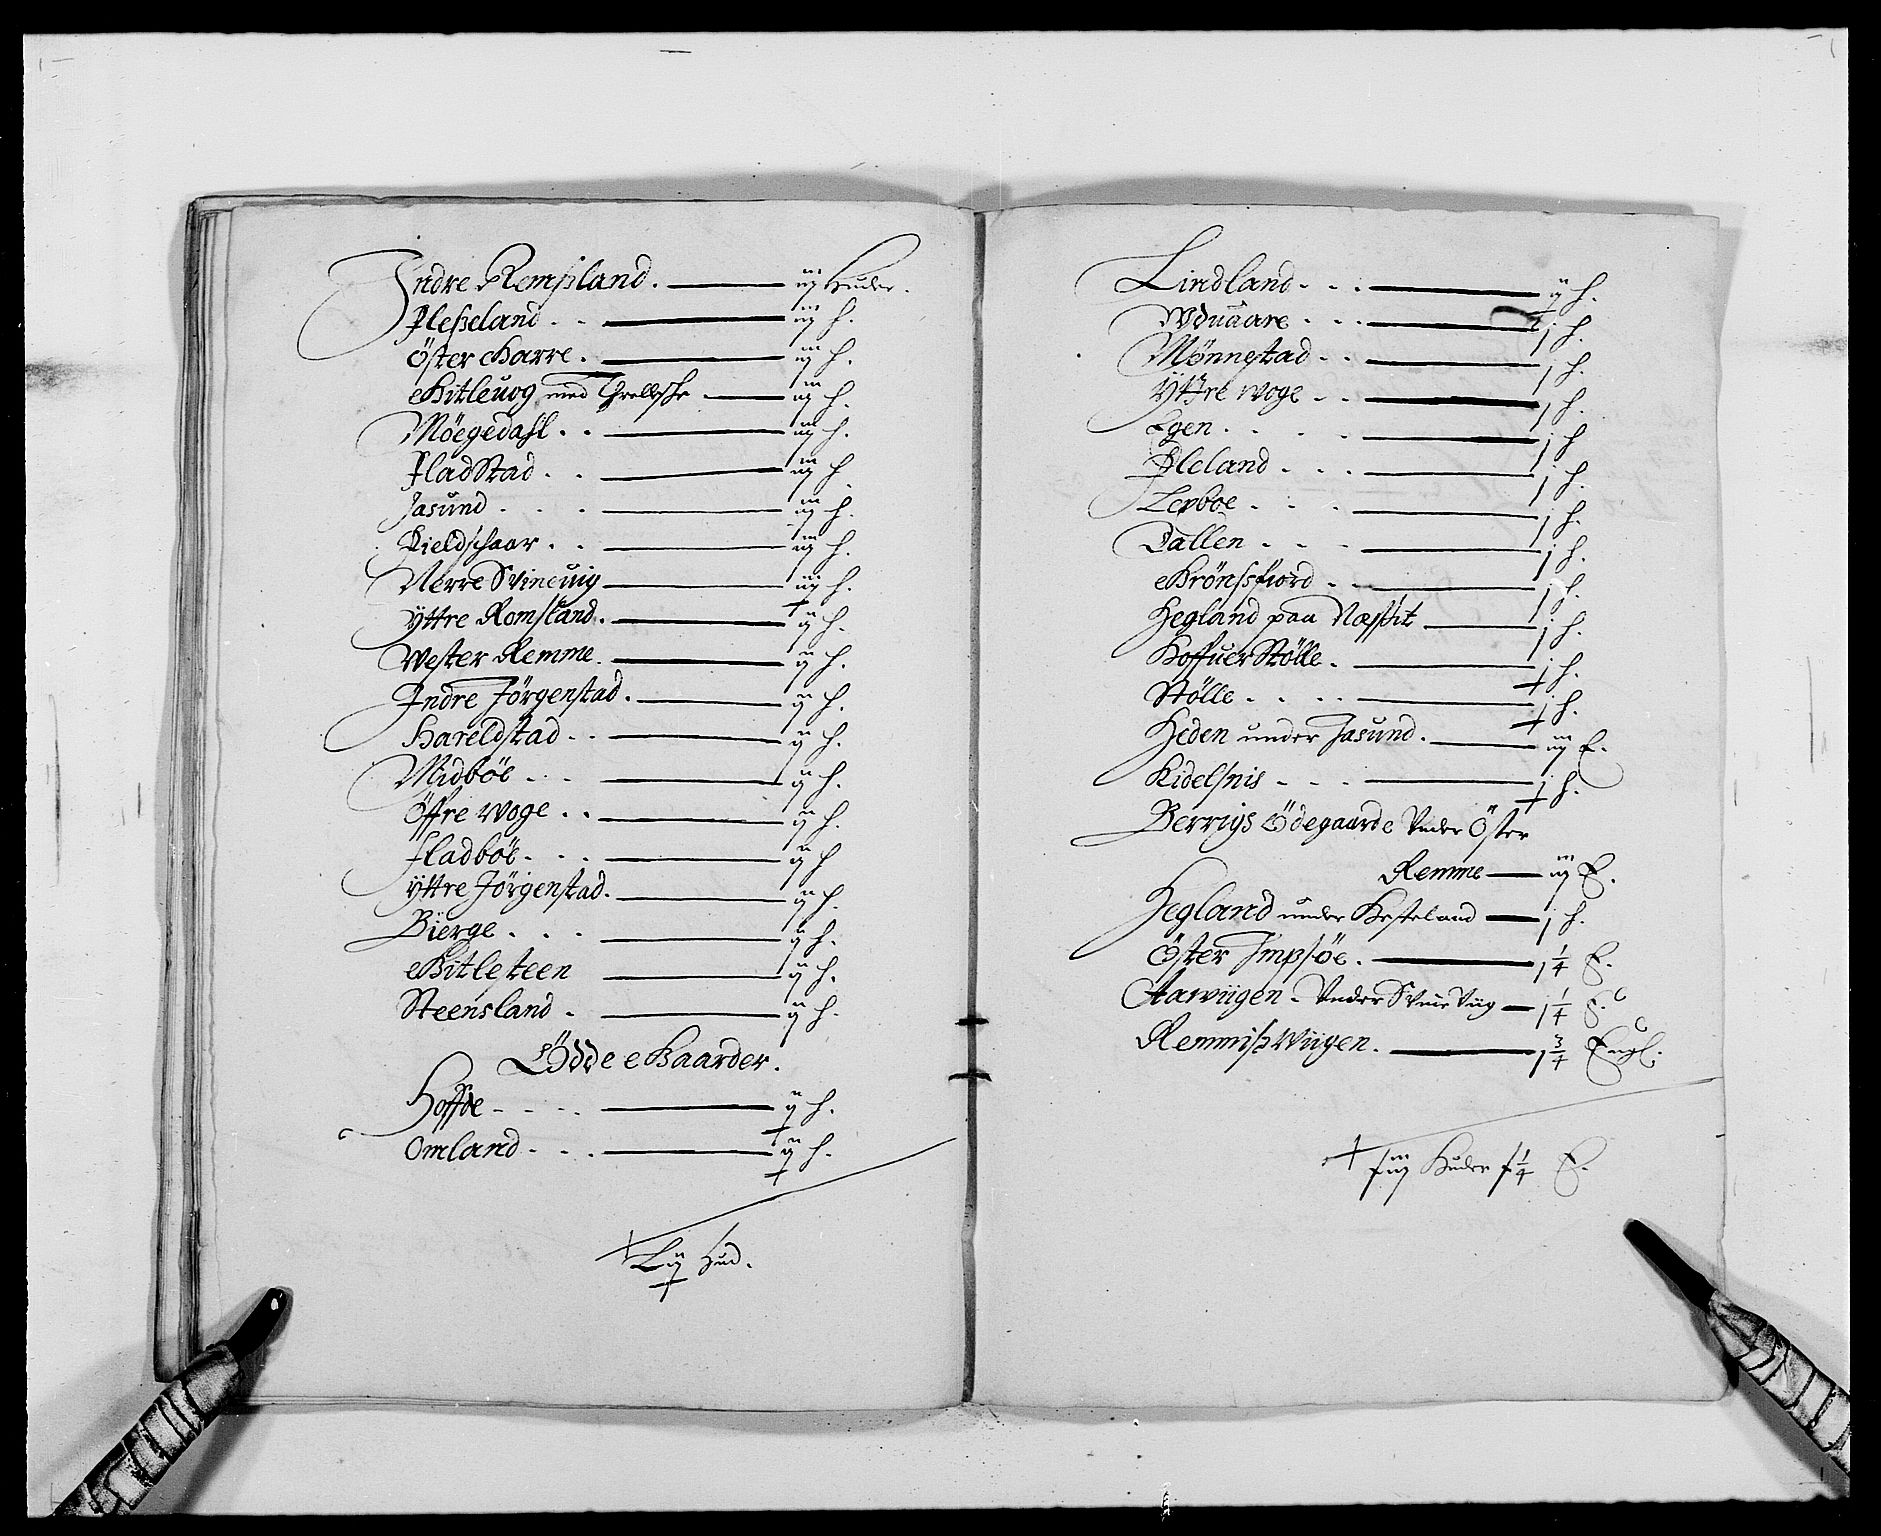 Indre Remßland. — iij Huder.
Pleßeland . . — iij h.
Öster Harre. — iij h.
Kitleuog med — iij h.
Möegedahl . . — iij h.
FladStad . . — iij h.
Jasund . . . — iij h.
Kieldschaar . . — iij h.
Nerre Svineuig — iij h.
Yttre Romsland. — ij h.
Wester Remme. — ij h.
Indre Jörgenstad. — ij h.
Hareldstad . . — ij h.
Midböe . . . — ij h.
Öffre Woge . . — ij h.
Fladböe . . . — ij h
Yttre Jörgenstad. — ij h.
Bierge . . . — ij h.
Kitlesteen — ij h.
Steensland . — ij h.
Ödde Gaarder.
Hoffde . . . . — ij h.
Omland . . . — ij h.
Lij Hud.
Lindland . . . — ij h.
Wduaare . . . — j h.
Mönnestad . . — j h.
Yttre Woge . . — j h.
Egen . . . . — j h
Fleland . . . — j h.
Lerboe . . . — j h.
Dallen . . . — j h.
Brönsfiord . . — j h.
Hegland paa Næssit — j h.
Hoffuer Stölle . — j h.
Stölle . . . . — j h.
Heden under Jasund. — iij E.
Kidelsnis . . . — j h.
Berrigs Ödegaarde Vnder Öster
Remme — iij E.
Hegland under Kesteland — j h.
Öster Impsöe. — j 1/4 E.
Aawiigen . Vnder Svine Viig — j 1/4 E.
Remmiß Wiigen. — j 3/4 Engl.
Huder 1/4 E.